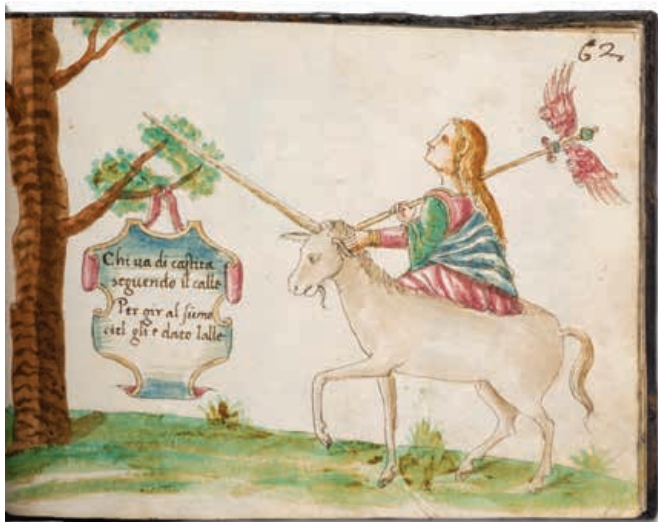 62
Chi ua di castita
seguendo il calle
Per gir al sumo
ciel gli è dato lalle